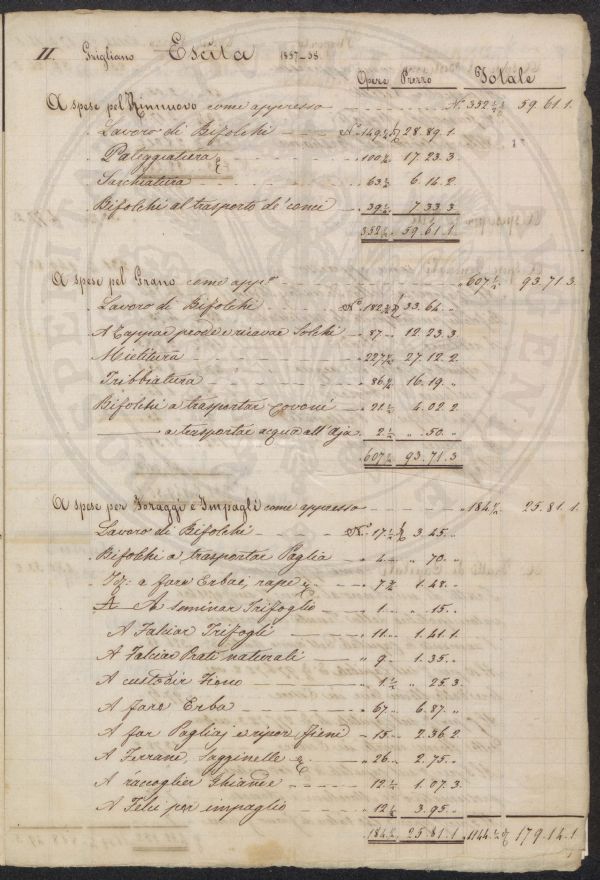 II. Grigliano Escita 1857-58
Opere Prezzo Totale
A spese pel Rinnuovo come appresso N. 352 ½ 59.61.1
Lavoro di Bifolchi N. 149 28.89.1
Paleggiatura 100 17.23.3
Sarchiatura 63 6.14.2
Bifolchi al trasporto de' conci 39 ½ 7.33.3
352 ½ 59.61.1
A spese pel Grano come app.o 607 ½ 93.71.3
Lavoro di Bifolchi N. 182 33.64
A Zappar prode e ricavar Solchi 87 12.23.3
Mietitura 227 27.12.2
Tribbiatura 86 16.19
Bifolchi a trasportar covoni 21 ½ 4.02.2
a trasportar acqua all'Aja 2 ½ .50
607 93.71.3
A spese per Foraggi e Impagli come appresso 184 25.81.1
Lavoro di Bifolchi N. 17 ½ 3.45
Bifolchi a trasportar Paglia 4 70
Id: a fare Erbai, rape 7 1.48
A seminar Trifoglio 1 15
A Falciar Trifogli 11 1.41.1
A Falciar Prati naturali 9 1.35
A custodir Fieno 1 ½ 25.3
A fare Erba 67 6.87
A far Pagliaj e ripor fieni 15 2.36.2
A Ferrane, Sagginelle 26 2.75
A raccoglier Ghiande 12 ½ 1.07.3
A Felci per impaglio 12 ½ 3.95
184 25.81.1 1144 179.14.1